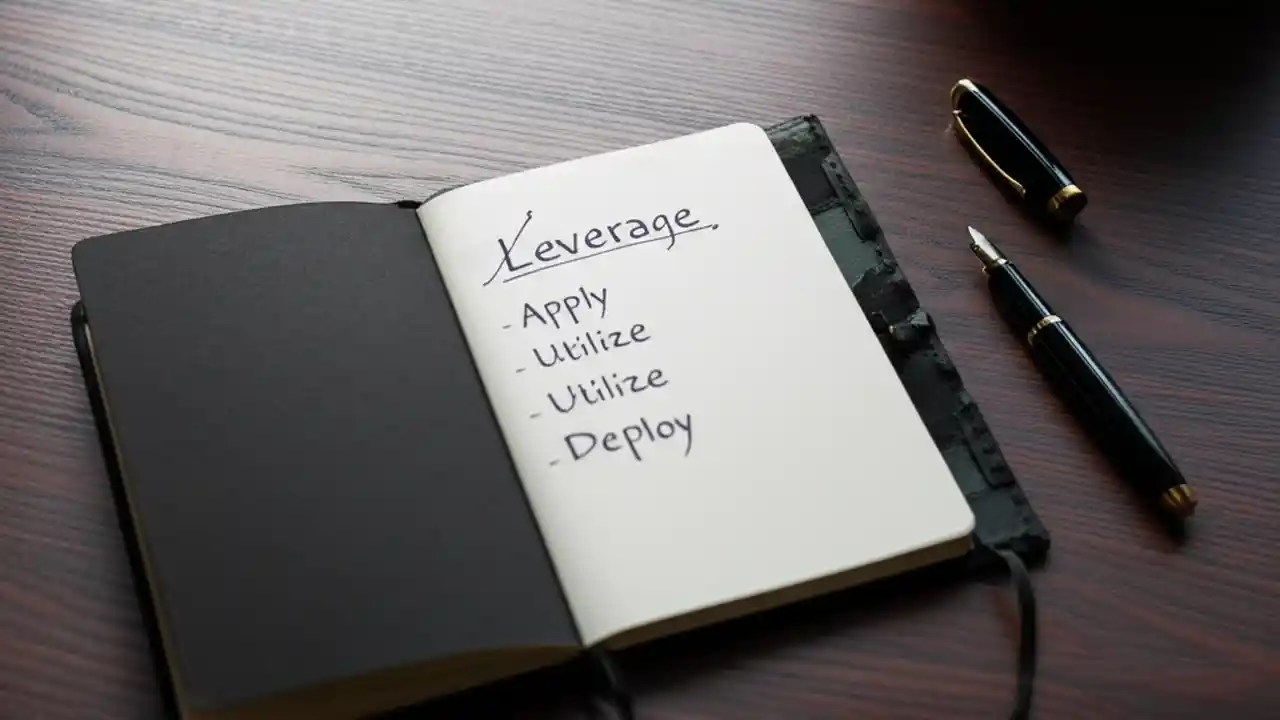 Leverage.
- Apply
- Utilize
- Utilize
- Deploy